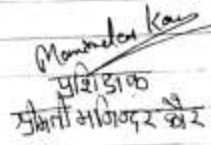 Maninder Kau
प्रशिक्षक
श्रीमती मनिन्दर कौर